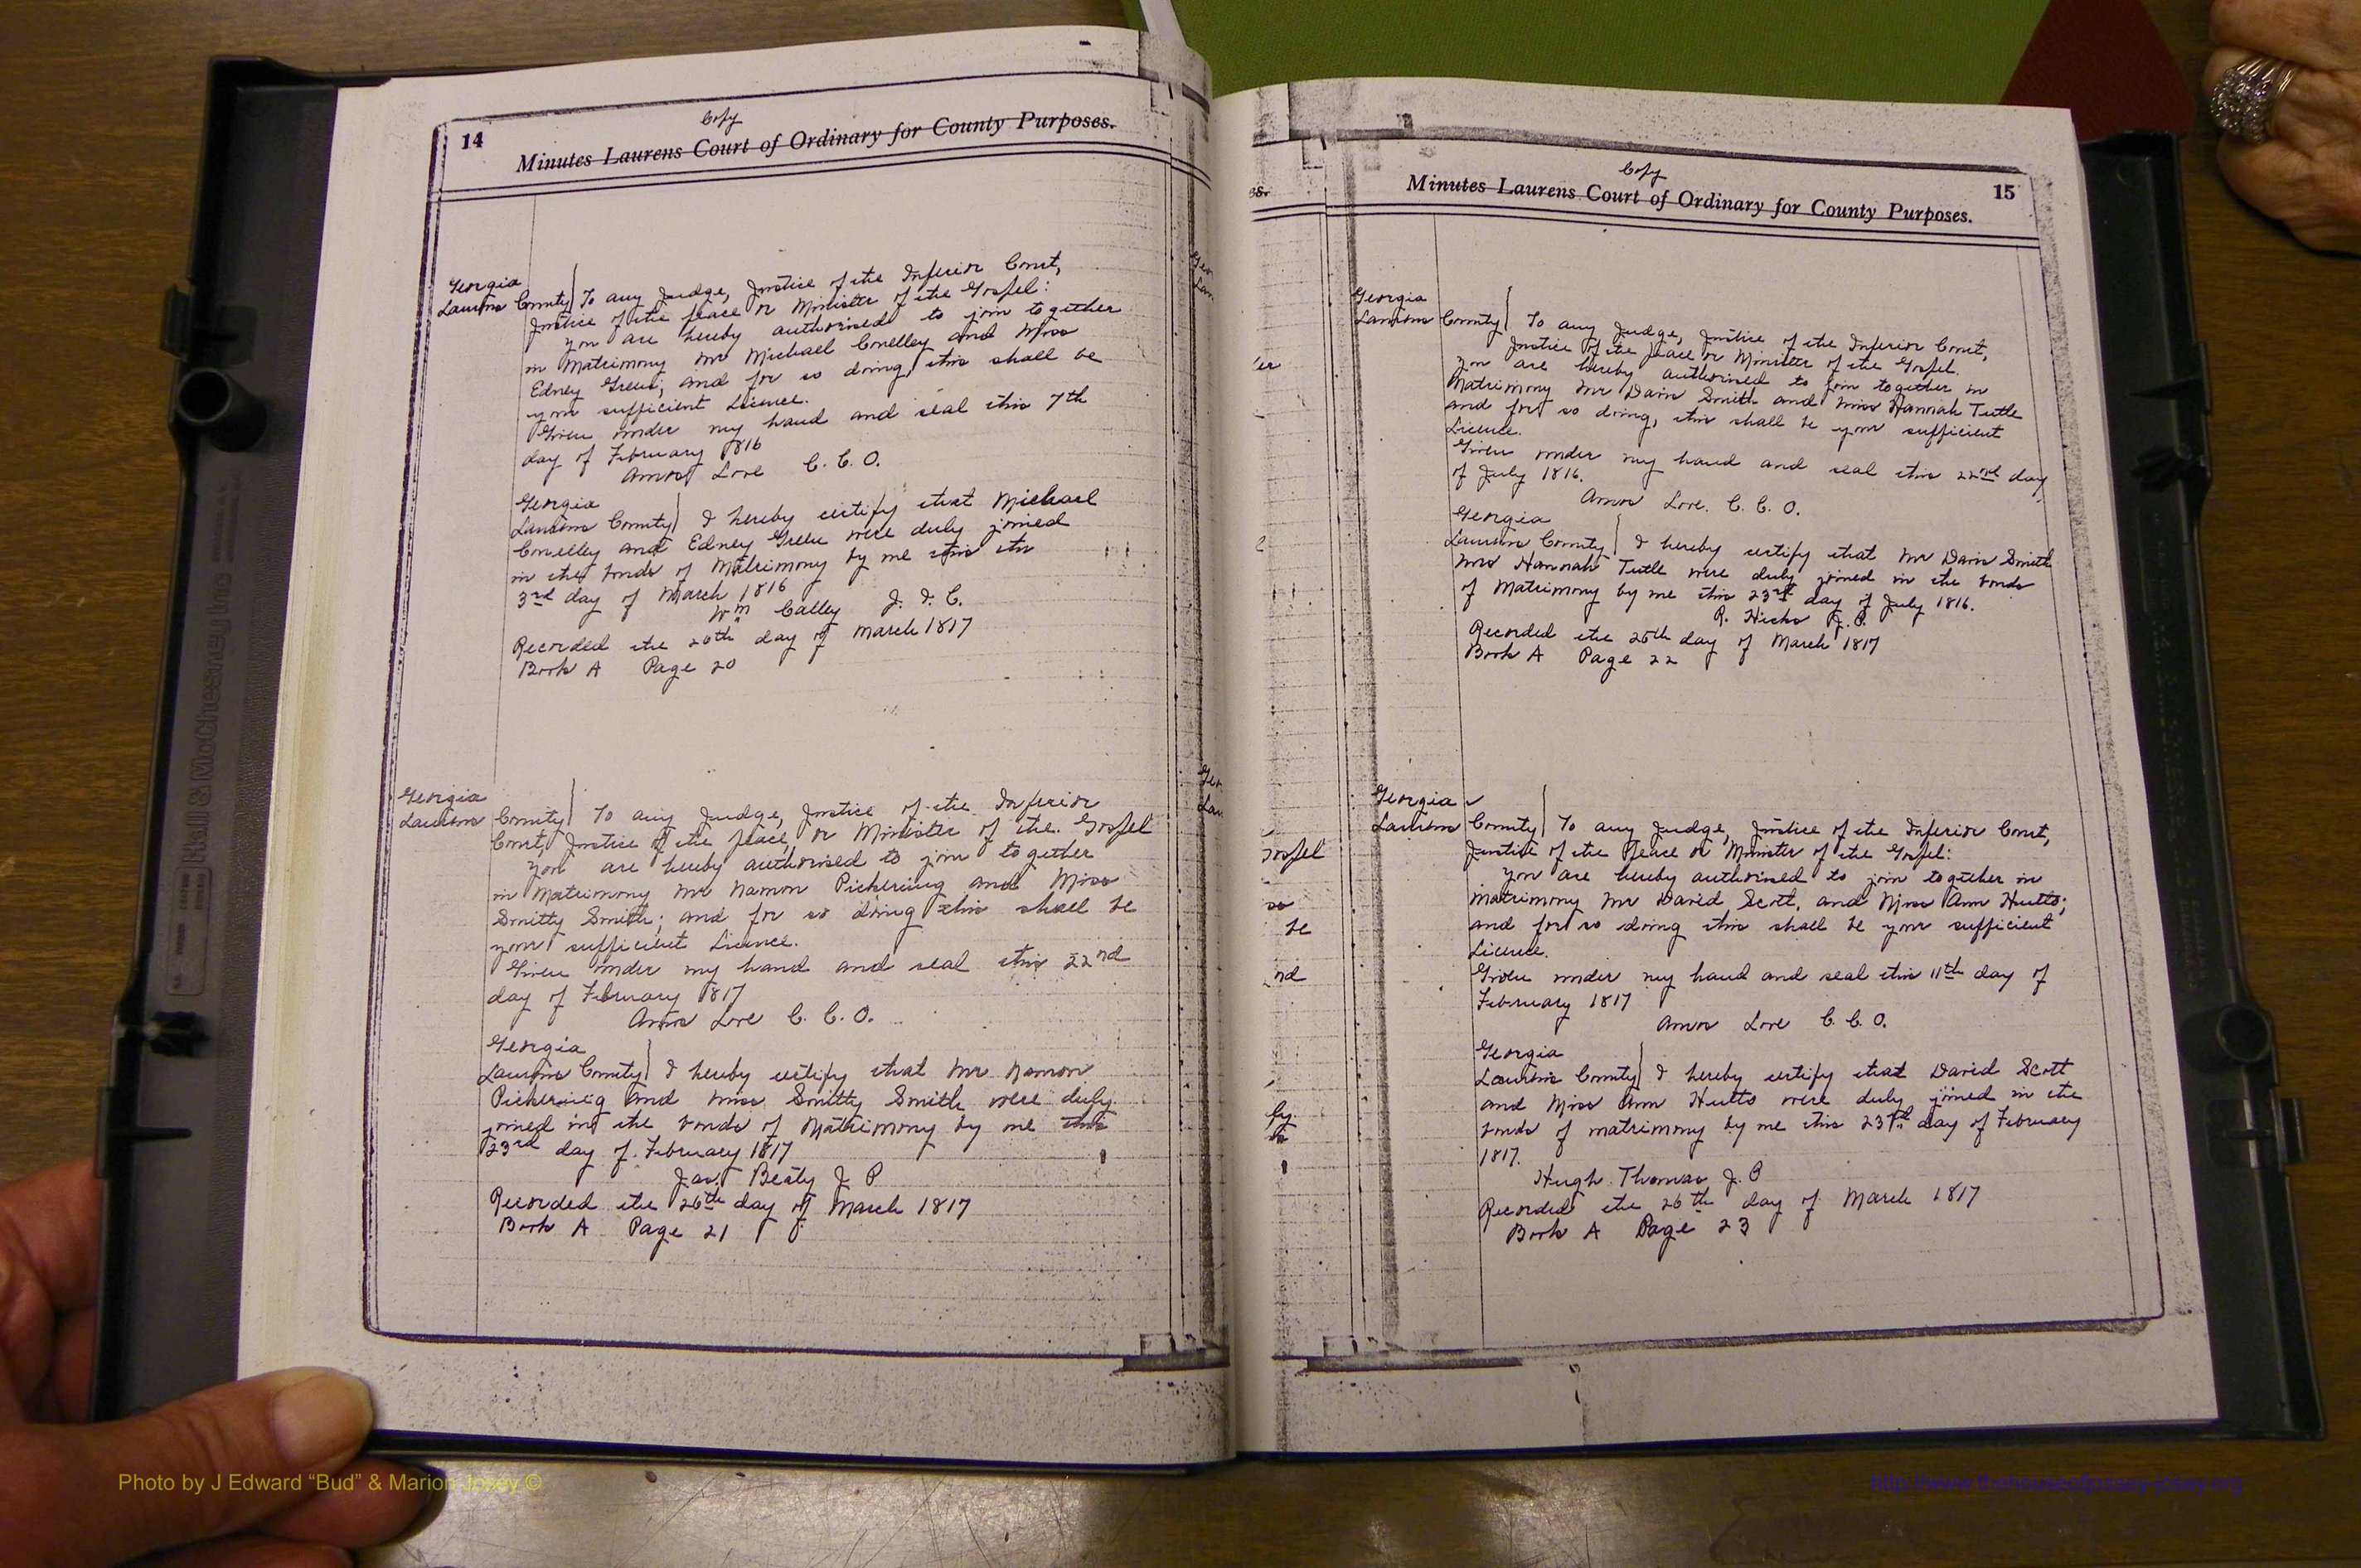 14
Copy
Minutes Laurens Court of Ordinary for County Purposes.
Georgia
Laurens County) To any Judge, Justice of the Inferior Court,
Justice of the peace or Minister of the Gospel:
you are hereby authorised to join together
in Matrimony Mr Michael Conelley and Miss
Edney Green; and for so doing, this shall be
your sufficient Licence.
Given under my hand and seal this 7th
day of February 1816
Amos Love C. C. O.
Georgia
Laurens County) I hereby certify that Michael
Conelley and Edney Green were duly joined
in the bonds of Matrimony by me this the
3rd day of March 1816
Wm Calley J. I. C.
Recorded the 26th day of March 1817
Book A Page 20
Georgia
Laurens County) To any Judge, Justice of the Inferior
Court, Justice of the peace, or Minister of the Gospel
you are hereby authorised to join together
in Matrimony Mr Namon Pickering and Miss
Smitty Smith; and for so doing this shall be
your sufficient Licence.
Given under my hand and seal this 22nd
day of February 1817
Amos Love C. C. O.
Georgia
Laurens County) I hereby certify that Mr Namon
Pickering and Miss Smitty Smith were duly
joined in the bonds of Matrimony by me this
23rd day of February 1817
Jas. Beaty J P
Recorded the 26th day of March 1817
Book A Page 21
15
Copy
Minutes Laurens Court of Ordinary for County Purposes.
Georgia
Laurens County) To any Judge, Justice of the Inferior Court,
Justice of the peace or Minister of the Gospel.
you are hereby authorised to join together in
Matrimony Mr Davis Smith and Miss Hannah Tutle
and for so doing, this shall be your sufficient
Licence.
Given under my hand and seal this 22nd day
of July 1816.
Amos Love. C. C. O.
Georgia
Laurens County) I hereby certify that Mr Davis Smith
Mrs Hannah Tutle were duly joined in the bonds
of Matrimony by me this 23rd day of July 1816.
R. Hicks J. P.
Recorded the 26th day of March 1817
Book A Page 22
Georgia
Laurens County) To any Judge, Justice of the Inferior Court,
Justice of the Peace or Minister of the Gospel:
you are hereby authorised to join together in
matrimony Mr David Scott, and Miss Ann Hutto;
and for so doing this shall be your sufficient
Licence.
Given under my hand and seal this 11th day of
February 1817
Amos Love C. C. O.
Georgia
Laurens County) I hereby certify that David Scott
and Miss Ann Hutto were duly joined in the
bonds of matrimony by me this 23rd day of February
1817.
Hugh Thomas J. P
Recorded the 26th day of March 1817
Book A Page 23
Photo by J Edward “Bud” & Marion Josey ©
http://www.thehouseofjossey-josey.org